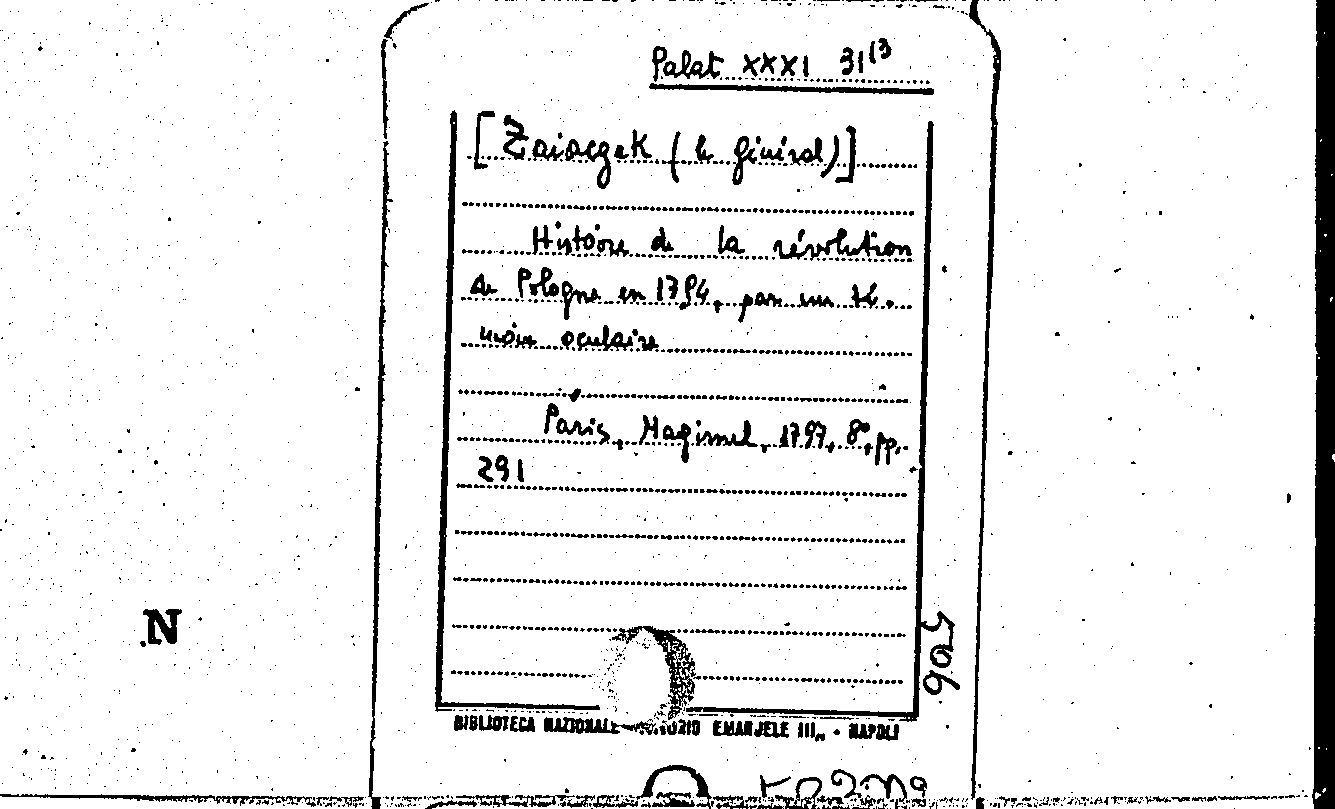 Palat XXXI 31(3
[Zaiaczek (le général)]
Histoire de la révolution
de Pologne en 1794, par un té-
moin oculaire
Paris, Magimel, 1797, 8°, pp.
291
N
506
BIBLIOTECA NAZIONALE EMANUELE III,, - NAPOLI